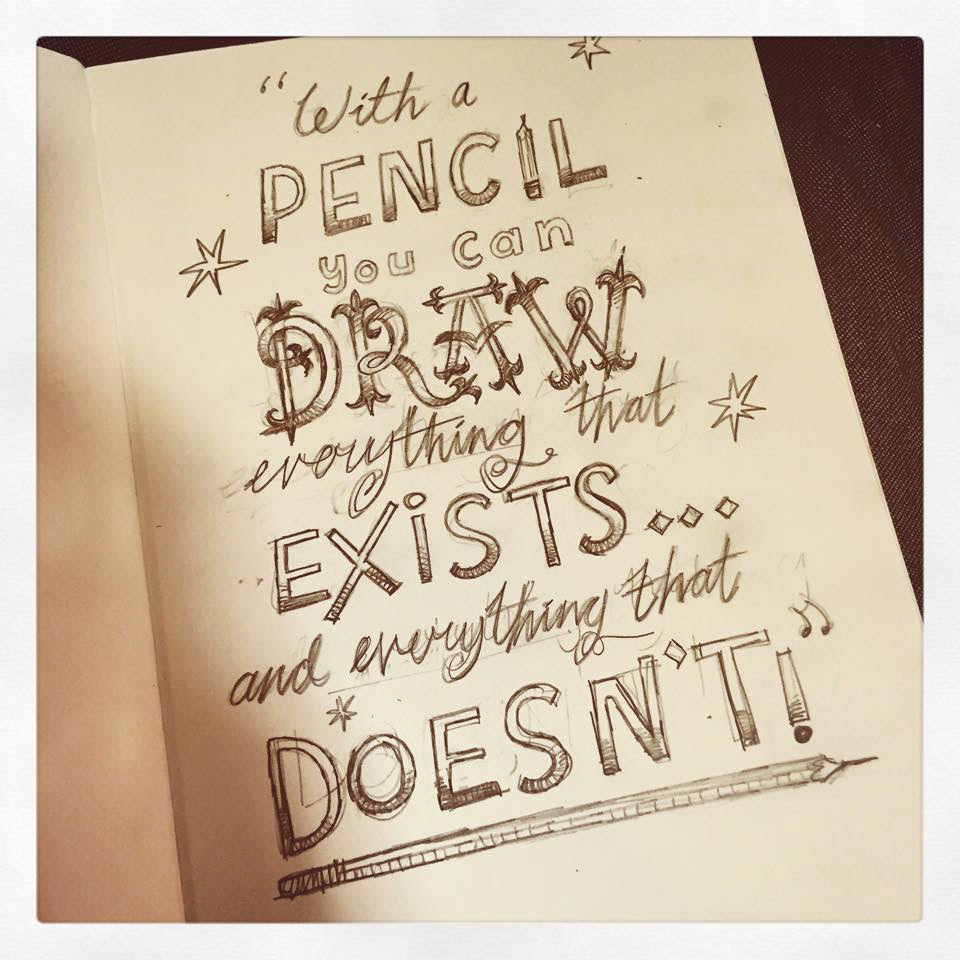 “With a
PENCIL
you can
DRAW
everything that
EXiSTS...
and everything that
DOESN'T!”